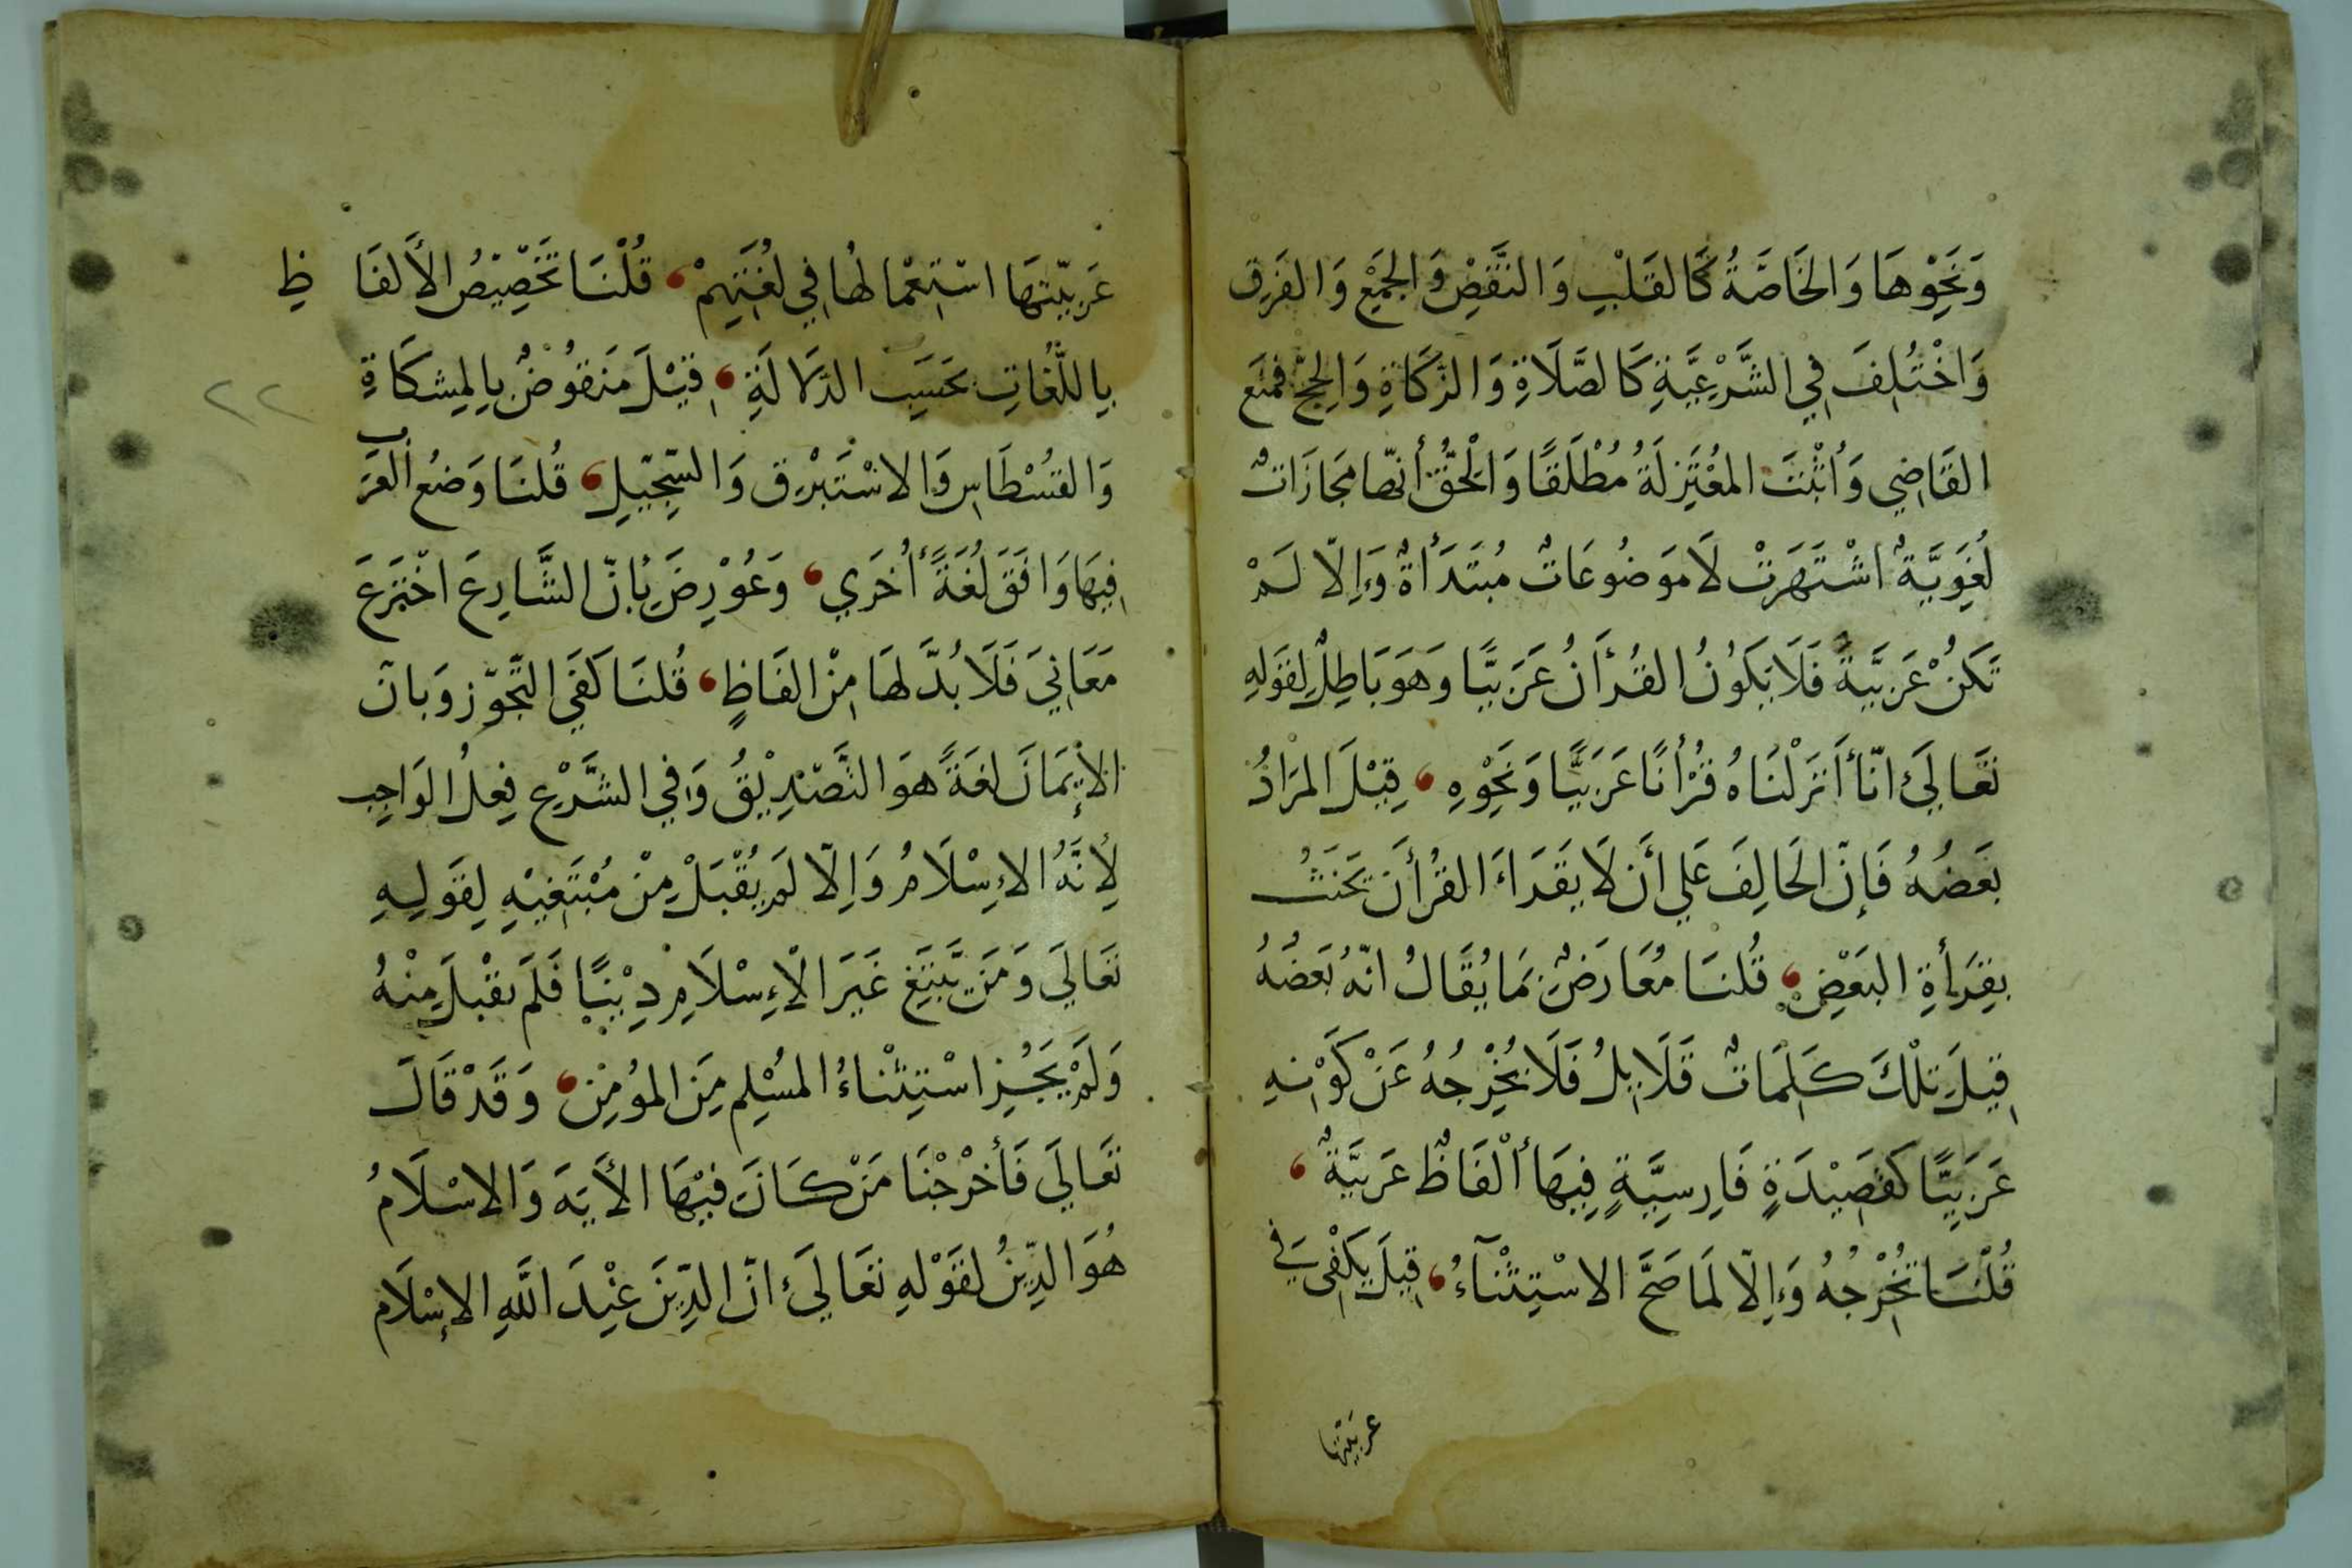 وَنَحْوِهَا وَالخَاصَّةُ كَالقَلْبِ وَالنَّقْضِ وَالجَمْعِ وَالفَرْقِ
وَاخْتُلِفَ فِي الشَّرْعِيَّةِ كَالصَّلَاةِ وَالزَّكَاةِ وَالحَجِّ فَمَنَعَ
القَاضِي وَأَثْبَتَ المُعْتَزِلَةُ مُطْلَقًا وَالحَقُّ أنّها مَجَازَاتٌ
لُغَوِيَّةٌ اشْتَهَرَتْ لَا مَوضُوعَاتٌ مُبْتَدَأَةٌ وَإِلّا لَمْ
تَكُنْ عَرَبِيَّةً فَلَا يَكُونُ القُرْأَنُ عَرَبِيًّا وَهُوَ بَاطِلٌ لِقَولِهِ
تَعَالَى انّا أَنْزَلْنَاهُ قُرْأنًا عَرَبِيًّا وَنَحْوِهِ ، قِيْلَ المُرَادُ
بَعْضُهُ فَإِنّ الحَالِفَ عَلى أَن لَا يَقْرَاءَ القُرأنَ يَحْنَثُ
بِقِرَأةِ البَعْضِ ، قُلنَا مُعَارَضٌ بِمَا يُقَالُ انّهُ بَعْضُهُ
قِيلَ تِلْكَ كَلِمَاتٌ قَلَايِلُ فَلَا يُخْرِجُهُ عَنْ كَوْنِهِ
عَرَبِيًّا كَقَصِيْدَةٍ فَارِسِيَّةٍ فِيهَا أَلْفَاظٌ عَرَبِيَّةٌ ،
قُلْنَا تُخْرِجُهُ وَإِلّا لَمَا صَحَّ الاسْتِثْنَآءُ ، قِيلَ يَكْفِي فِي
عربيتها
عَرَبِيّتِهَا اسْتِعْمَالُهَا فِي لُغَتِهِمْ ، قُلْنَا تَخْصِيْصُ الأَلفَاظِ
بِاللُّغَاتِ بِحَسَبِ الدَّلَالَةِ ، قِيْلَ مَنقُوضٌ بِالمِشكَاةِ
وَالقُسْطَاسِ وَالاسْتَبْرَقِ وَالسِّجِّيلِ ، قُلنَا وَضعُ العَرَب
فِيهَا وَافَقَ لُغَةً أُخرَى ، وَعُوْرِضَ بِأنّ الشَّارِعَ اخْتَرَعَ
مَعَانِيَ فَلَا بُدَّ لَهَا مِنْ الفَاظٍ ، قُلنَا كَفَى التَّجَوّز وَبانّ
الإِيْمَانَ لُغَةً هُوَ التَّصْدِيْقُ وَفِي الشَّرْعِ فِعلُ الوَاجِبِ
لِأَنَّهُ الاِسْلَامُ وَإِلّا لَم يُقْبَلْ مِنْ مُبْتَغِيْهِ لِقَولِهِ
تَعَالَى وَمَنْ يَّبْتَغِ غَيْرَ الْاِسْلَامِ دِيْنًا فَلَم يُقْبلَ مِنْهُ
وَلَمْ يَجُزِ اسْتِثْنَاءُ المُسْلِمِ مِنَ المُومِن ، وَقَدْ قَالَ
تَعَالَى فَأَخْرَجْنَا مَنْ كَانَ فِيْهَا الأَيَةَ وَالاسْلَامُ
هُوَ الدِّينُ لِقَوْلِهِ تَعَالَى انّ الدِّينَ عِنْدَ اللَّهِ الإسْلَام